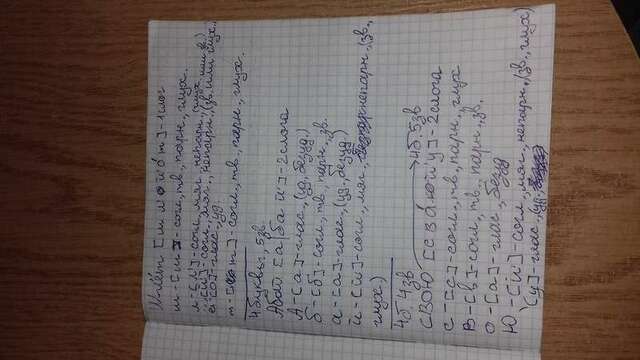 Шлёт [ш л й' о т] - 1 слог
ш - [ш] - согл., тв., парн., глух.
л - [л'] - согл., мяг., непарн., (глух. или зв.)
.. [й'] - согл., мяг., непарн., (зв. или глух.,
ё [о] - глас., уд.
т - [т] - согл., тв., парн., глух.
4 буквы, 5 зв.
Абай [а|ба й'] - 2 слога
А - [а] - глас., (уд., безуд.)
б - [б] - согл., тв., парн., зв.
а - [а] - глас., (уд., безуд)
й - [й'] - согл., мяг., непарн., (зв.,
глух.)
4б. 4зв
4б. 5зв
СВОЮ [с в а й' у] - 2 слога
С - [с] - согл., тв., парн., глух
В - [в] - согл., тв., парн., зв.
О - [а] - глас., безуд
Ю - [й'] - согл., мяг., непарн., (зв., глух)
[у] - глас., (уд.,